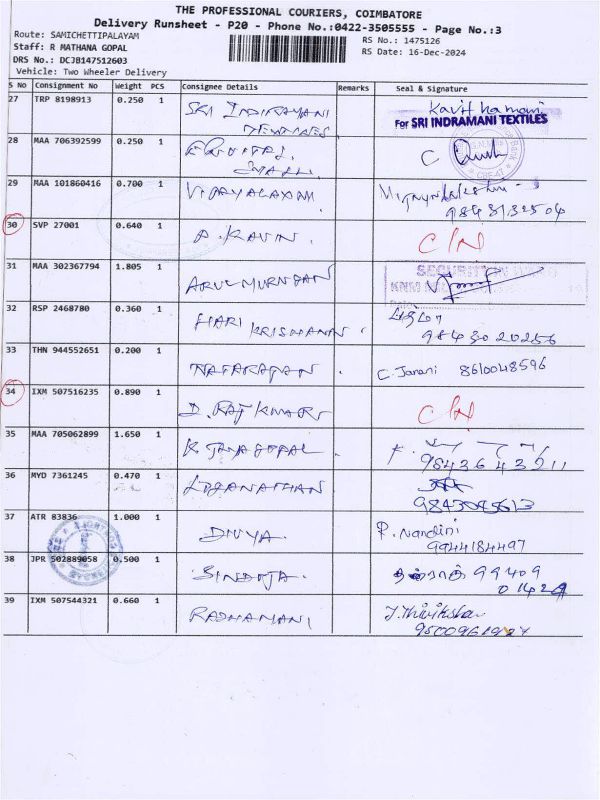 THE PROFESSIONAL COURIERS, COIMBATORE
Delivery Runsheet - P20 - Phone No.:0422-3505555 - Page No.:3
Route: SAMICHETTIPALAYAM
RS No.: 1475126
Staff: R MATHANA GOPAL
RS Date: 16-Dec-2024
DRS No.: DCJB147512603
Vehicle: Two Wheeler Delivery
S No Consignment No Weight PCS Consignee Details Remarks Seal & Signature
27 TRP 8198913 0.250 1 SRI INDIRAYANI
For SRI INDRAMANI TEXTILES
28 MAA 706392599 0.250 1
29 MAA 101860416 0.700 1 VIJAYALAXMI
9843132504
30 SVP 27001 0.640 1 P. KAVIN.
31 MAA 302367794 1.805 1 ARUL MURUGAN
32 RSP 2468780 0.360 1 HARI KRISHANAN
98430 20256
33 THN 944552651 0.200 1 NATARAJAN C. Janani 8610048596
34 IXM 507516235 0.890 1 D. RAJ KUMAR
35 MAA 705062899 1.650 1 K. JAYAGOPAL
9843643211
36 MYD 7361245 0.470 1 LOGANATHAN
9843045613
37 ATR 83836 1.000 1 DIVYA. P. Nandini
9944184497
38 JPR 502889058 0.500 1 SINDUJA. 99409
39 IXM 507544321 0.660 1 RADHAMANI